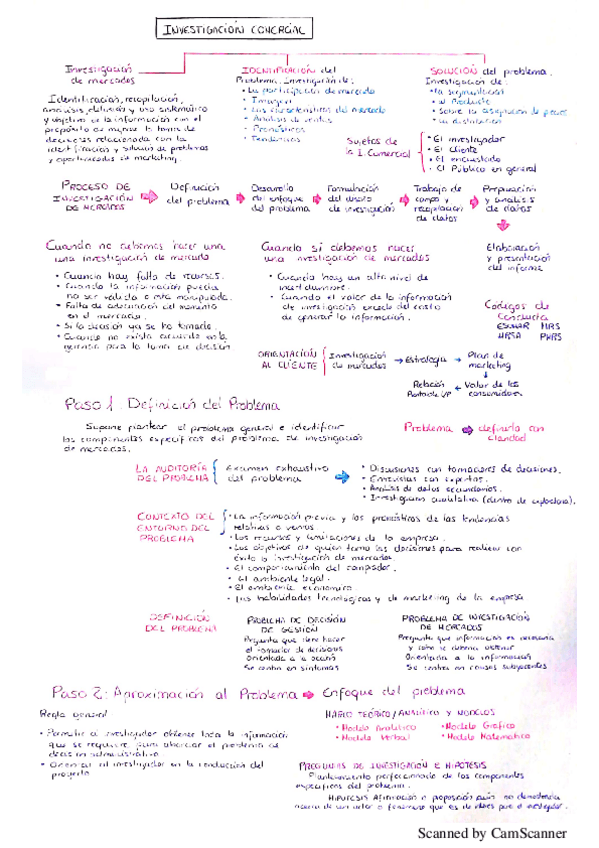 INVESTIGACIÓN COMERCIAL
Investigación
de mercados
Identificación, recopilación,
análisis, difusión y uso sistemático
y objetivo de la información con el
propósito de mejorar la toma de
decisiones relacionada con la
identificación y solución de problemas
y oportunidades de marketing.
IDENTIFICACIÓN del
Problema. Investigación de:
• La participación de mercado
• Imagen
• Las características del mercado
• Análisis de ventas
• Pronósticos
• Tendencias
SOLUCIÓN del problema.
Investigación de:
• la segmentación
• el Producto
• Sobre la asignación de precios
• La distribución
Sujetos de
la I. Comercial
• El investigador
• El cliente
• El encuestado
• El Público en general
PROCESO DE
INVESTIGACIÓN
DE MERCADOS
Definición
del problema
Desarrollo
del enfoque
del problema
Formulación
del diseño
de investigación
Trabajo de
campo y
recopilación
de datos
Preparación
y análisis
de datos
Elaboración
y presentación
del informe
Cuando no debemos hacer una
una investigación de mercado
• Cuando hay falta de recursos.
• Cuando la información pueda
no ser válida o esté manipulada.
• Falta de adecuación del momento
en el mercado.
• Si la decisión ya se ha tomado.
• Cuando no exista acuerdo en la
gerencia para la toma de decisión
Cuando sí debemos hacer
una investigación de mercados
• Cuando hay un alto nivel de
incertidumbre.
• Cuando el valor de la información
de investigación exceda del costo
de generar la información.
Códigos de
Conducta
ESOMAR MRS
MRSA PMRS
ORIENTACIÓN
AL CLIENTE
Investigación
de mercados
Estrategia
Plan de
marketing
Valor de los
consumidores
Relación
Rentable L/P
Paso 1: Definición del Problema
Supone plantear el problema general e identificar
los componentes específicos del problema de investigación
de mercados.
Problema definirlo con
claridad
LA AUDITORÍA
DEL PROBLEMA
Examen exhaustivo
del problema
• Discusiones con tomadores de decisiones.
• Entrevistas con expertos.
• Análisis de datos secundarios.
• Investigación cualitativa (dentro de exploratoria).
CONTEXTO DEL
ENTORNO DEL
PROBLEMA
• La información previa y los pronósticos de las tendencias
relativas a ventas.
• Los recursos y limitaciones de la empresa.
• Los objetivos de quien toma las decisiones para realizar con
éxito la investigación de mercados.
• El comportamiento del comprador.
• El ambiente legal.
• El ambiente económico.
• Las habilidades tecnológicas y de marketing de la empresa
DEFINICIÓN
DEL PROBLEMA
PROBLEMA DE DECISIÓN
DE GESTIÓN
Pregunta que debe hacer
el tomador de decisiones
Orientada a la acción
Se centra en síntomas
PROBLEMA DE INVESTIGACIÓN
DE MERCADOS
Pregunta que información es necesaria
y cómo se debería obtener
Orientada a la información
Se centra en causas subyacentes
Paso 2: Aproximación al Problema Enfoque del problema
Regla general
• Permitir al investigador obtener toda la información
que se requiere para abordar el problema de
decisión administrativa
• Orientar al investigador en la conducción del
proyecto
MARCO TEÓRICO/ANALÍTICO Y MODELOS
• Modelo Analítico • Modelo Gráfico
• Modelo Verbal • Modelo Matemático
PREGUNTAS DE INVESTIGACIÓN E HIPÓTESIS
Planteamiento perfeccionado de los componentes
específicos del problema.
HIPÓTESIS Afirmación o proposición aún no demostrada
acerca de un factor o fenómeno que es de interés para el investigador.
Scanned by CamScanner